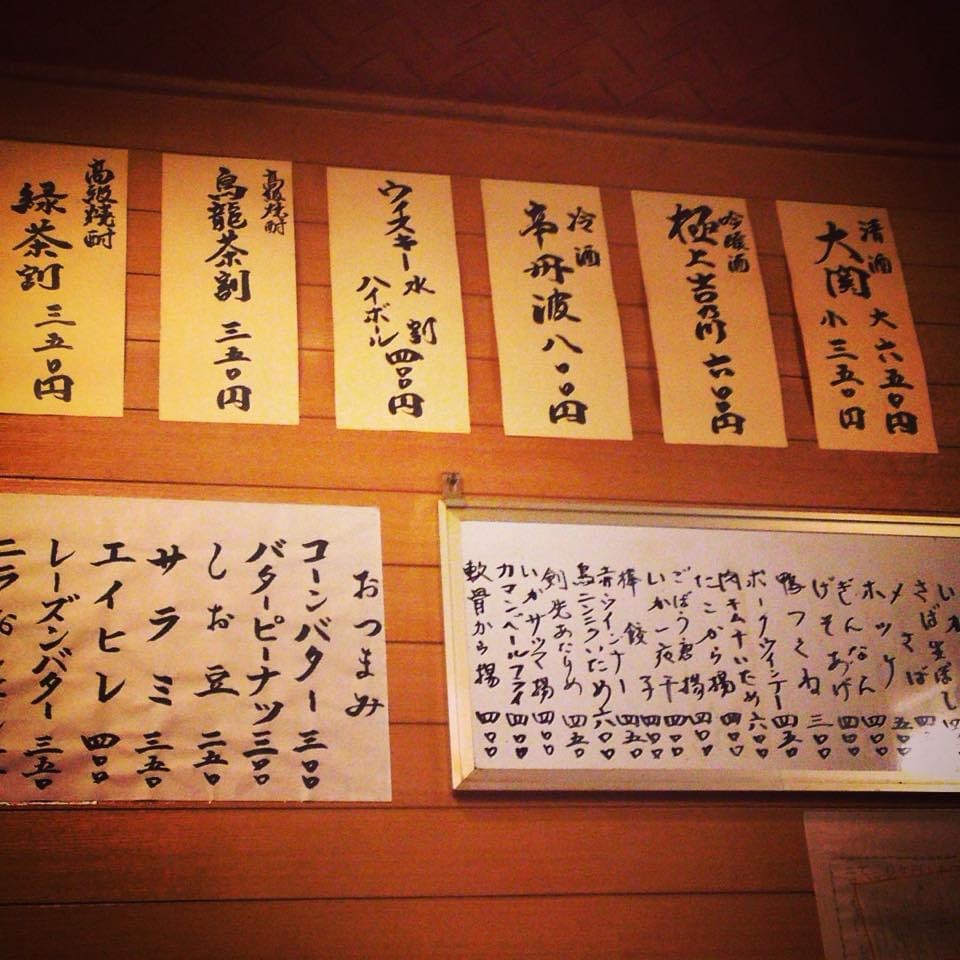 清酒
大関 大 六五〇円
小 三五〇円
吟醸酒
極上吉乃川 六〇〇円
冷酒
帝丹波 八〇〇円
ウイスキー 水割
ハイボール 四〇〇円
高級焼酎
烏龍茶割 三五〇円
高級焼酎
緑茶割 三五〇円
おつまみ
コーンバター 三〇〇
バターピーナツ 三〇〇
しお豆 二五〇
サラミ 三五〇
エイヒレ 四〇〇
レーズンバター 三五〇
さば
メさば 五〇〇
ホッケ 四〇〇
ぎんなん 四〇〇
げそあげ 四〇〇
鴨つくね 三〇〇
ポークウインナー 四五〇
肉キムチいため 六〇〇
たこから揚 四〇〇
ごぼう唐揚 四〇〇
いか一夜干 四〇〇
棒餃子 四〇〇
赤ウインナー 四五〇
鳥ニンニクいため 六〇〇
剣先あたりめ 四五〇
いかサツマ揚 四〇〇
カマンベールフライ 四〇〇
軟骨から揚 四〇〇